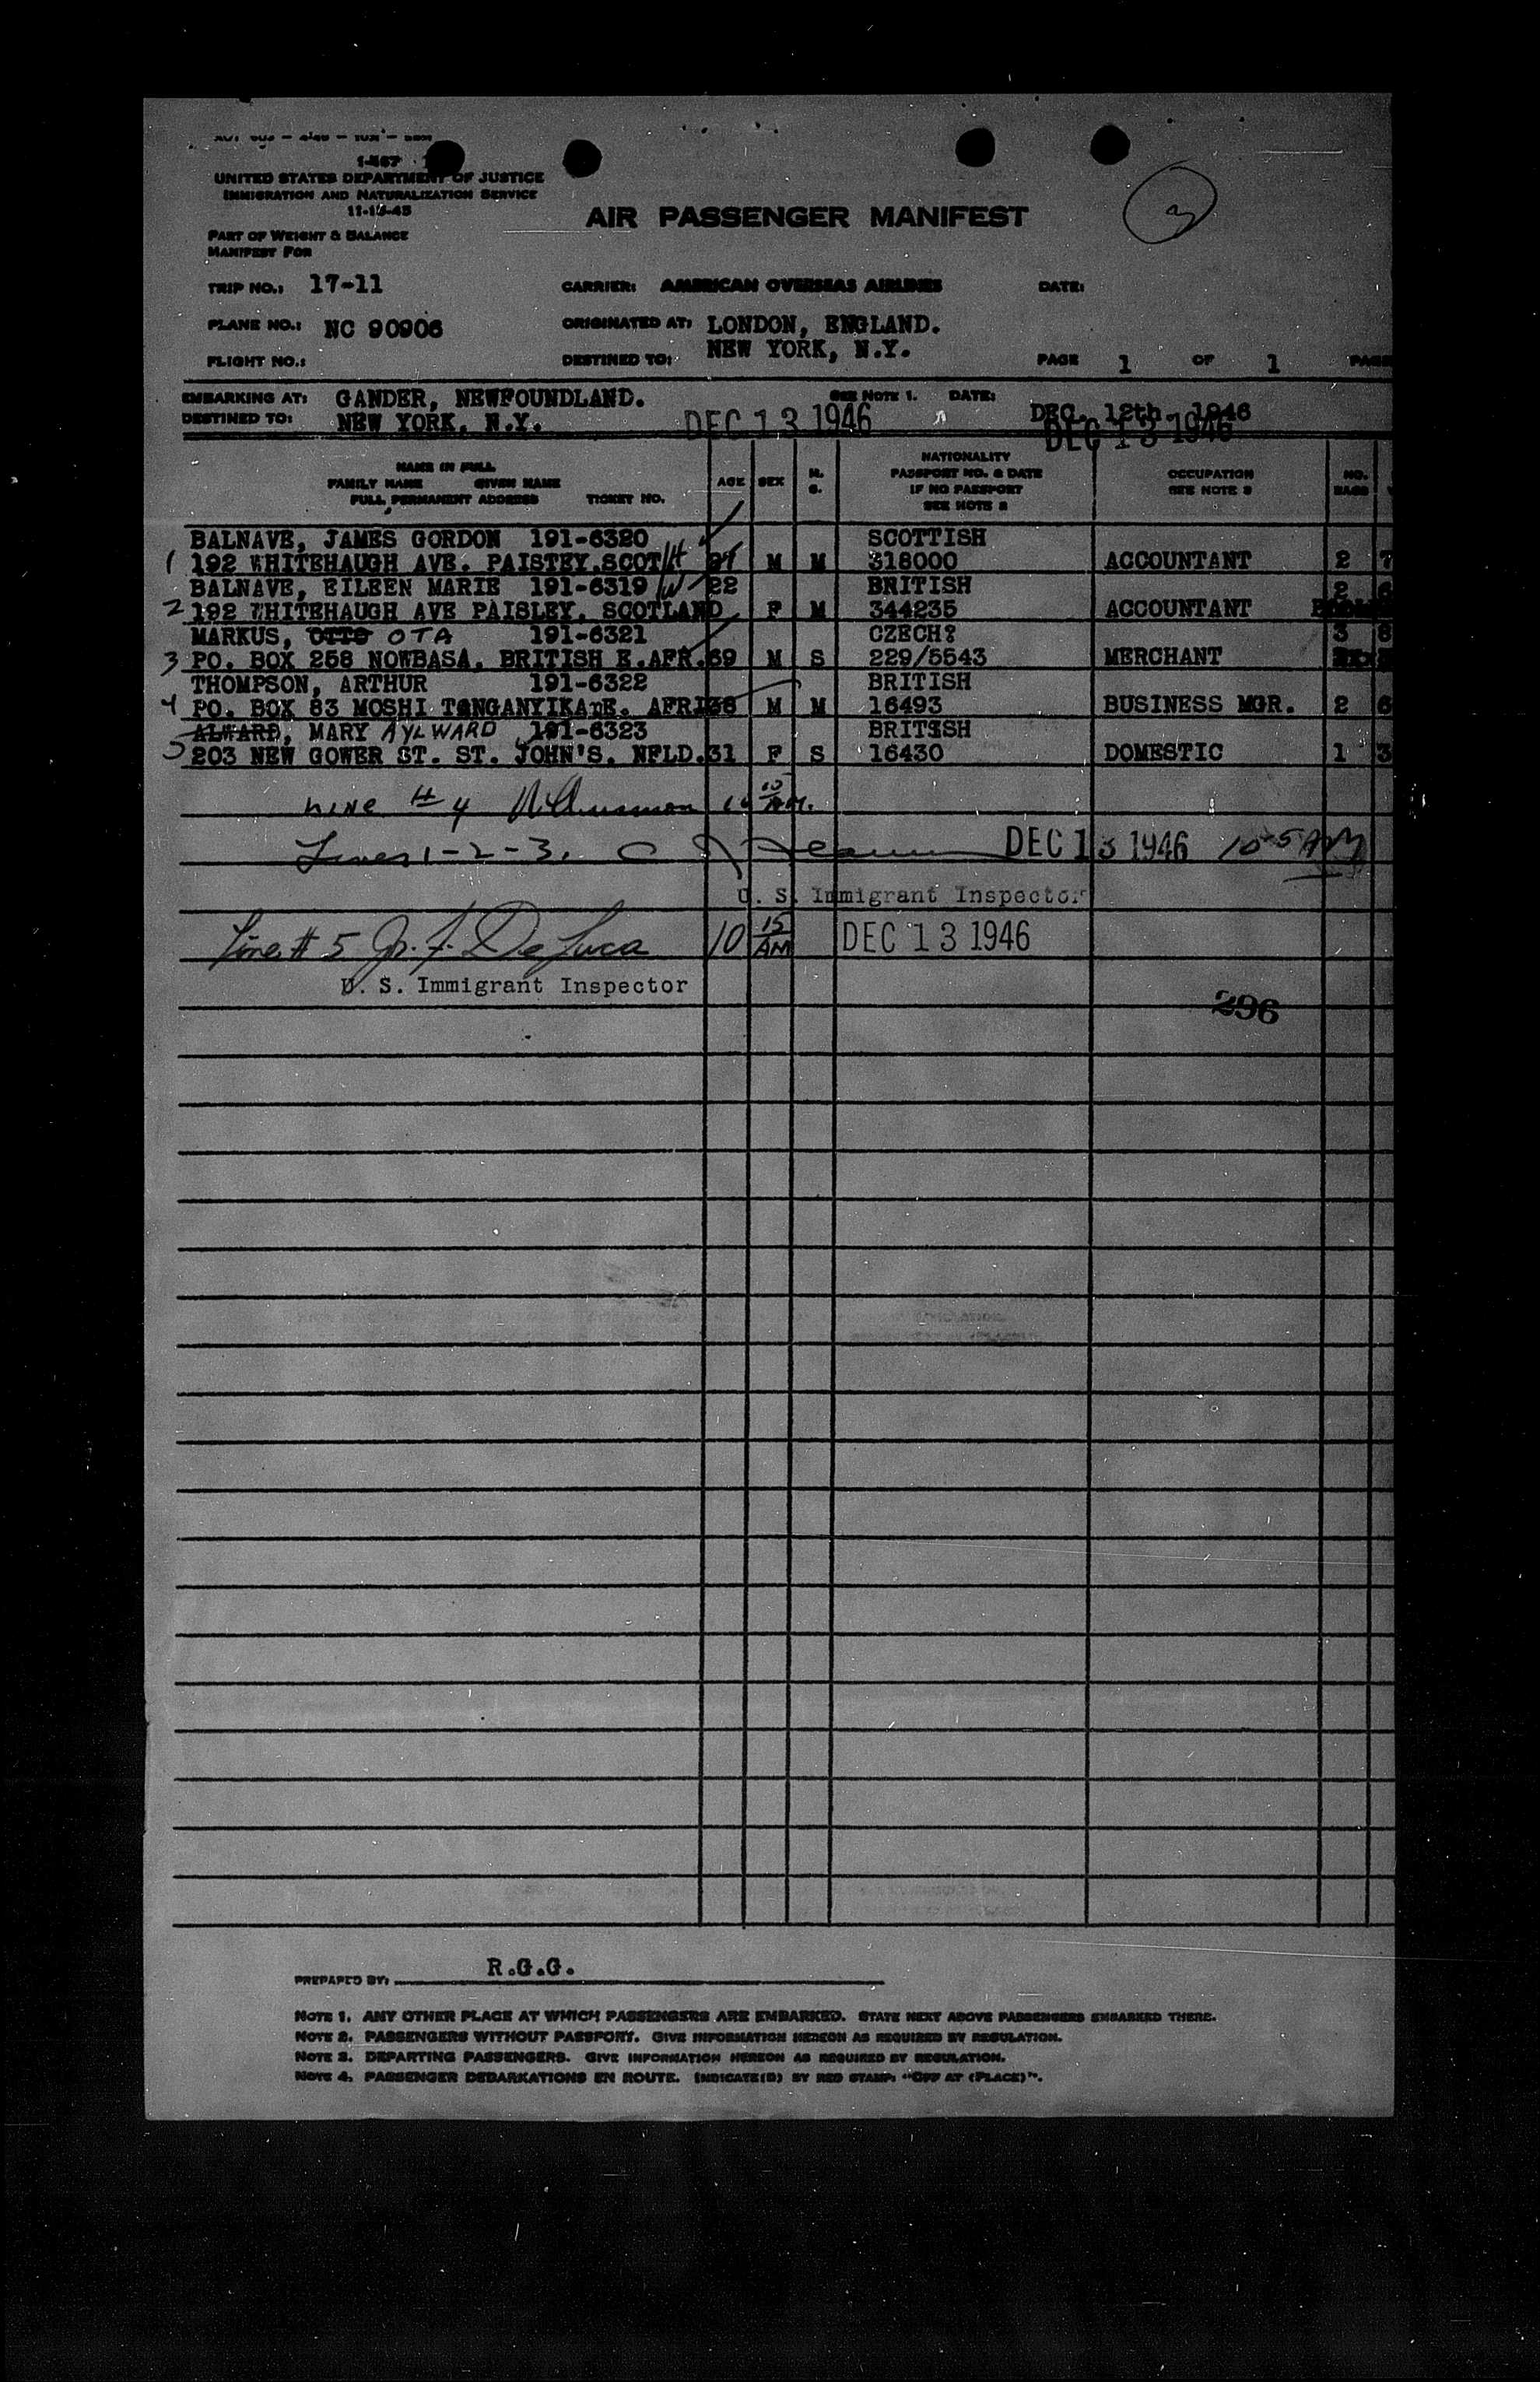 1-467
UNITED STATES DEPARTMENT OF JUSTICE
IMMIGRATION AND NATURALIZATION SERVICE
11-15-45
AIR PASSENGER MANIFEST
PART OF WEIGHT & BALANCE
MANIFEST FOR
TRIP NO.: 17-11 CARRIER: AMERICAN OVERSEAS AIRLINES DATE:
PLANE NO.: NC 90906 ORIGINATED AT: LONDON, ENGLAND.
FLIGHT NO.: DESTINED TO: NEW YORK, N.Y. PAGE 1 OF 1
EMBARKING AT: GANDER, NEWFOUNDLAND. SEE NOTE 1. DATE: DEC. 12th. 1946
DESTINED TO: NEW YORK, N.Y. DEC 13 1946 DEC 13 1946
NAME IN FULL
FAMILY NAME GIVEN NAME
FULL PERMANENT ADDRESS TICKET NO. AGE SEX M. S. NATIONALITY PASSPORT NO. & DATE IF NO PASSPORT SEE NOTE 2 OCCUPATION SEE NOTE 3 NO. BAGS
BALNAVE, JAMES GORDON 191-6320 SCOTTISH
1 192 WHITEHAUGH AVE. PAISTEY.SCOT H M M 318000 ACCOUNTANT 2 7
BALNAVE, EILEEN MARIE 191-6319 W 22 BRITISH 2 6
2 192 WHITEHAUGH AVE PAISLEY, SCOTLAND F M 344235 ACCOUNTANT
MARKUS, OTTO OTA 191-6321 CZECH? 3 8
3 PO. BOX 258 NOWBASA. BRITISH E.AFR. 69 M S 229/5543 MERCHANT
THOMPSON, ARTHUR 191-6322 BRITISH
4 PO. BOX 83 MOSHI TANGANYIKA E. AFRI 36 M M 16493 BUSINESS MGR. 2 6
ALWARD, MARY AYLWARD 191-6323 BRITISH
5 203 NEW GOWER ST. ST. JOHN'S. NFLD. 31 F S 16430 DOMESTIC 1 3
Line # 4
Lines 1-2-3. DEC 13 1946 10 05 AM
U. S. Immigrant Inspector
Line # 5 Jr. F. DeLuca 10 15 AM DEC 13 1946
U. S. Immigrant Inspector
296
PREPARED BY: R.G.G.
NOTE 1. ANY OTHER PLACE AT WHICH PASSENGERS ARE EMBARKED. STATE NEXT ABOVE PASSENGERS EMBARKED THERE.
NOTE 2. PASSENGERS WITHOUT PASSPORT. GIVE INFORMATION HEREON AS REQUIRED BY REGULATION.
NOTE 3. DEPARTING PASSENGERS. GIVE INFORMATION HEREON AS REQUIRED BY REGULATION.
NOTE 4. PASSENGER DEBARKATIONS EN ROUTE. INDICATE(D) BY RED STAMP: "OFF AT (PLACE)".